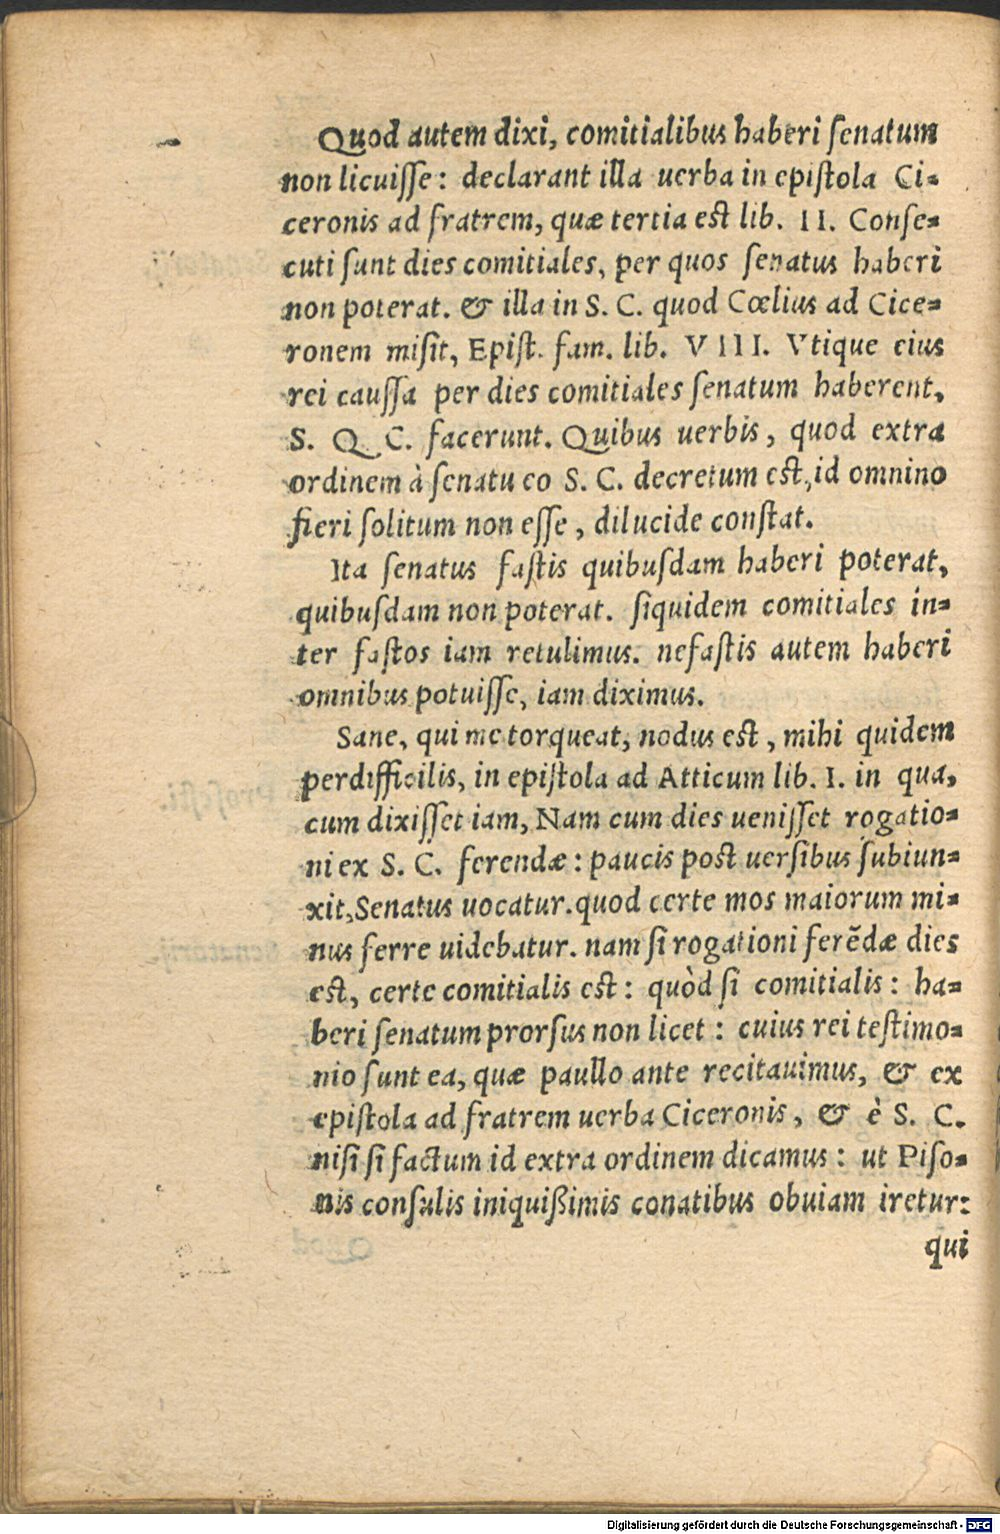 Quod autem dixi, comitialibus haberi senatum
non licuisse: declarant illa uerba in epistola Ci-
ceronis ad fratrem, quæ tertia est lib. II. Conse-
cuti sunt dies comitiales, per quos senatus haberi
non poterat. & illa in S. C. quod Cœlius ad Cice-
ronem misit, Epist. fam. lib. VIII. Vtique eius
rei caussa per dies comitiales senatum haberent,
S. Q. C. facerunt. Quibus uerbis, quod extra
ordinem à senatu eo S. C. decretum est, id omnino
fieri solitum non esse, dilucide constat.
Ita senatus fastis quibusdam haberi poterat,
quibusdam non poterat. siquidem comitiales in-
ter fastos iam retulimus. nefastis autem haberi
omnibus potuisse, iam diximus.
Sane, qui me torqueat, nodus est, mihi quidem
perdifficilis, in epistola ad Atticum lib. I. in qua,
cum dixisset iam, Nam cum dies uenisset rogatio-
ni ex S. C. ferendæ: paucis post uersibus subiun-
xit, Senatus uocatur. quod certe mos maiorum mi-
nus ferre uidebatur. nam si rogationi ferēdæ dies
est, certe comitialis est: quòd si comitialis: ha-
beri senatum prorsus non licet: cuius rei testimo-
nio sunt ea, quæ paullo ante recitauimus, & ex
epistola ad fratrem uerba Ciceronis, & è S. C.
nisi si factum id extra ordinem dicamus: ut Piso-
nis consulis iniquißimis conatibus obuiam iretur:
qui
Digitalisierung gefördert durch die Deutsche Forschungsgemeinschaft - DFG